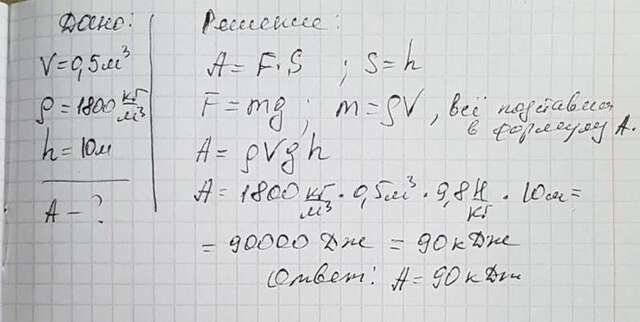 Дано:
V=0,5м³
ρ=1800 кг/м³
h=10м
A-?
Решение:
A=F·S ; S=h
F=mg; m=ρV, всё подставим
в формулу A.
A=ρVgh
A=1800 кг/м³·0,5м³·9,8 Н/кг·10м=
=90000 Дж=90кДж
Ответ: A=90кДж